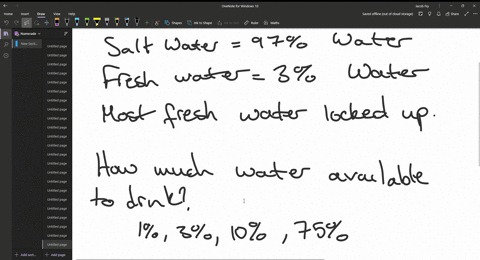 OneNote for Windows 10
Jacob Fry
Home
Insert
Draw
View
Help
Shapes
Ink to Shape
Ink to Text
Math
Numerade
Untitled page
Untitled page
Untitled page
Untitled page
Untitled page
Untitled page
Untitled page
Untitled page
Untitled page
Untitled page
Untitled page
Untitled page
Untitled page
Untitled page
Untitled page
Untitled page
Untitled page
Untitled page
Untitled page
Untitled page
Add page
Salt Water = 97% Water
Fresh water = 3% Water
Most fresh water locked up.
How much water available
to drink?
1%, 3%, 10%, 75%